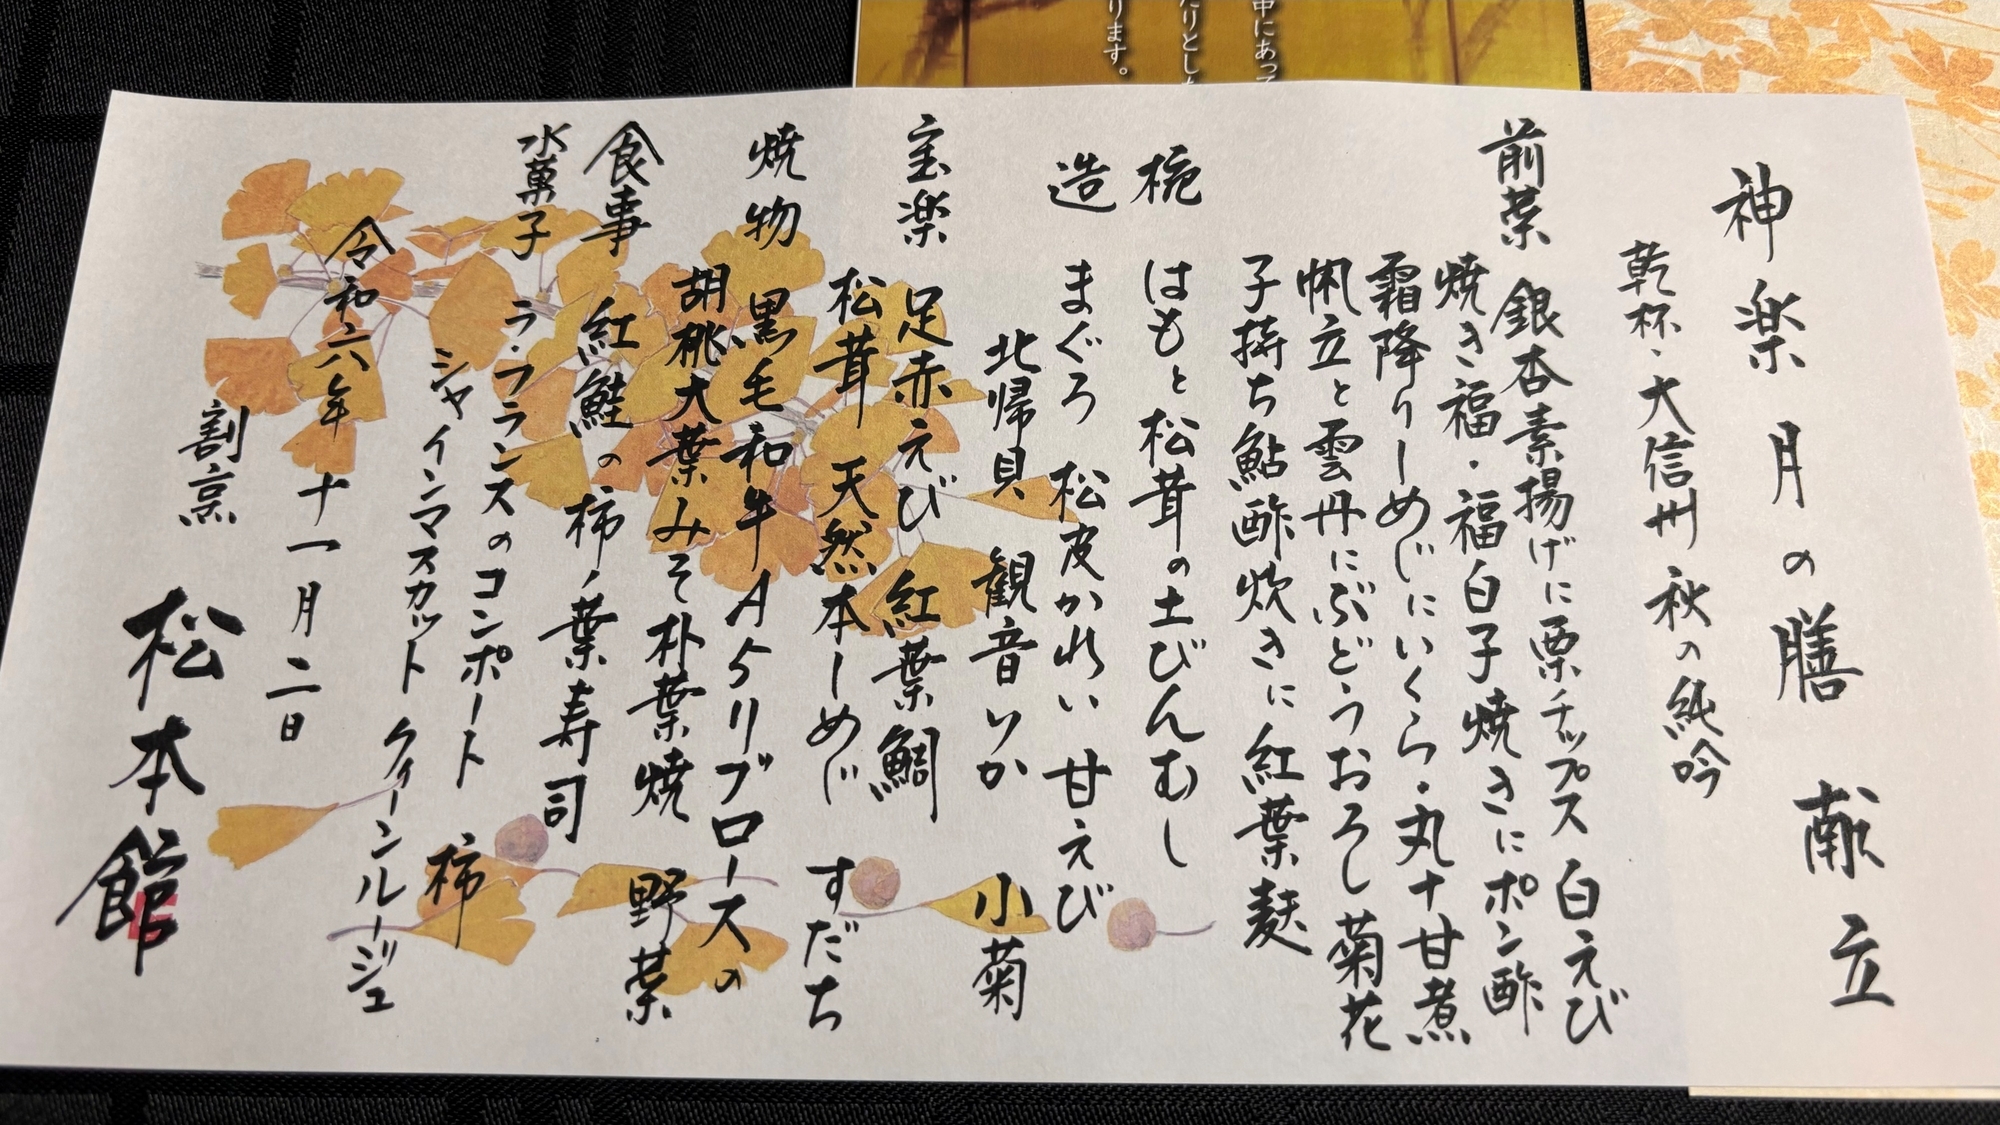 神楽月の膳 献立
乾杯・大信州 秋の純吟
前菜 銀杏素揚げに栗チップス 白えび
焼き福・福白子焼きにポン酢
霜降りしめじにいくら・丸十甘煮
帆立と雲丹にぶどうおろし菊花
子持ち鮎酢炊きに紅葉麩
椀 はもと松茸の土びんむし
造 まぐろ 松皮かれい 甘えび
北帰貝 観音いか 小菊
宝楽 足赤えび 紅葉鯛
松茸 天然本しめじ すだち
焼物 黒毛和牛A5リブロースの
胡桃大葉みそ朴葉焼 野菜
食事 紅鮭の柿ノ葉寿司
水菓子 ラ・フランスのコンポート 柿
シャインマスカット クイーンルージュ
令和六年 十一月二日
割烹 松本館
中にあって
たりとした
ります。